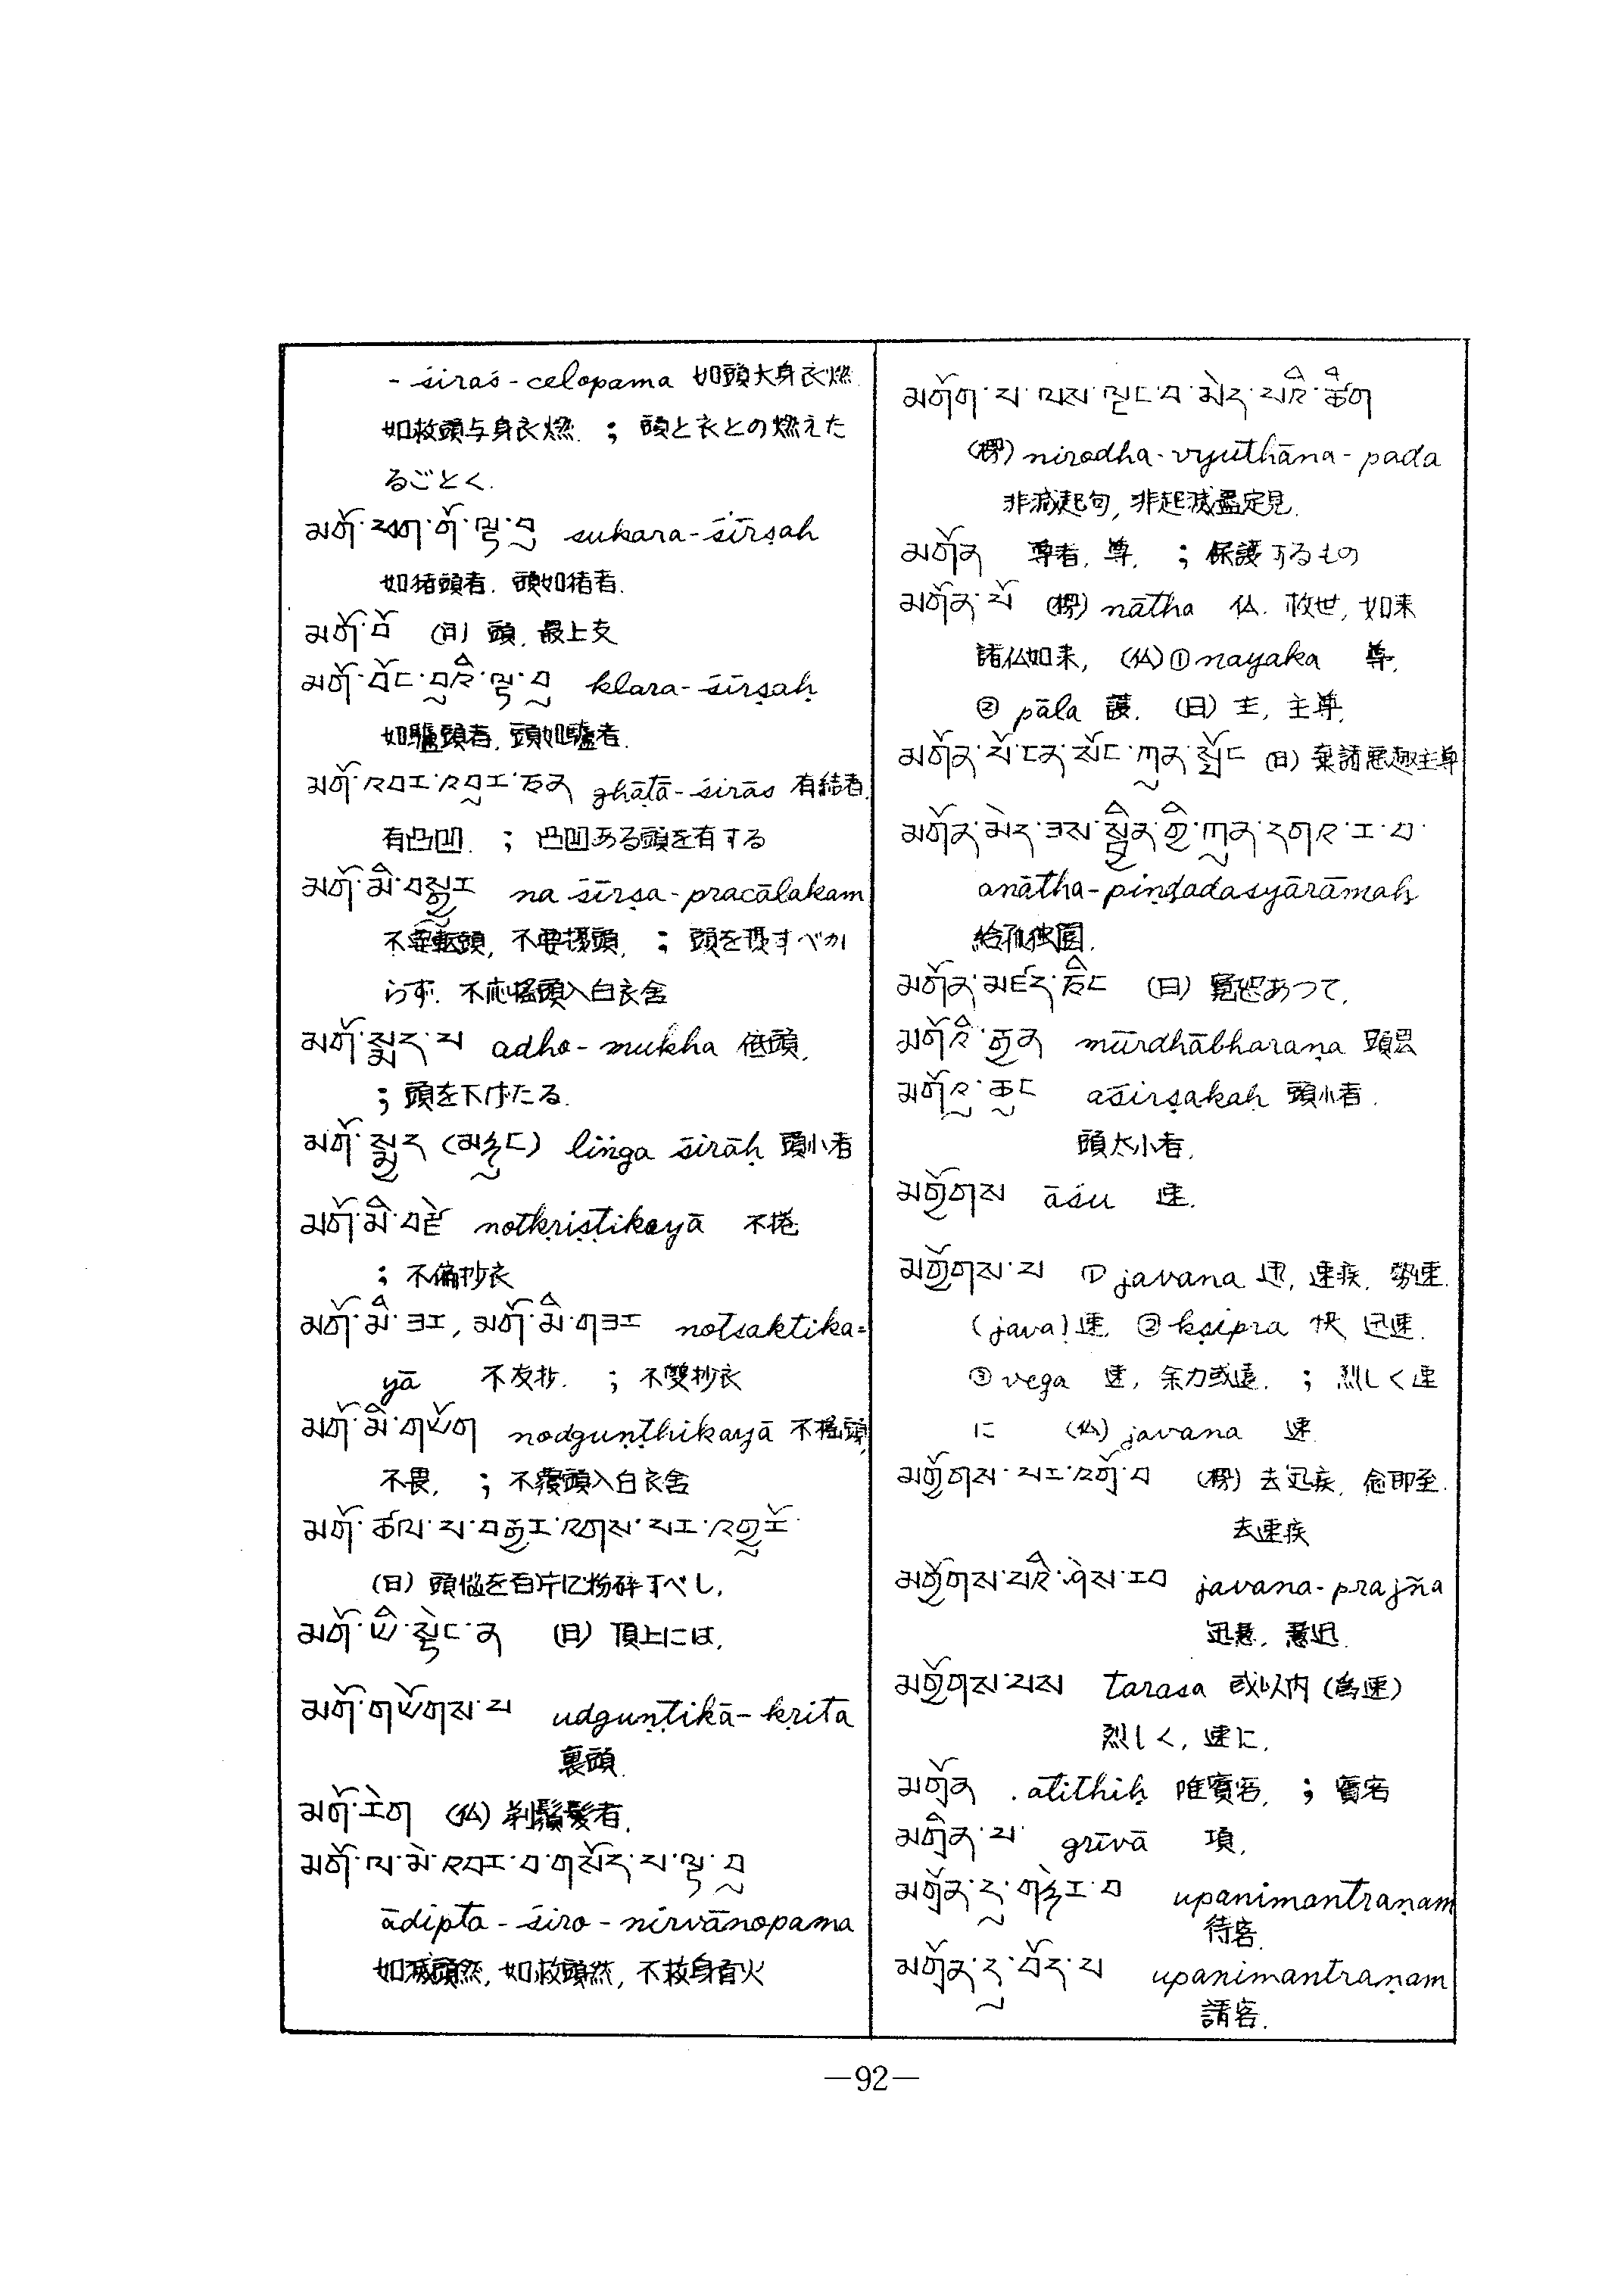 -śiras-celopama 如頭大身衣燃.
如救頭与身衣燃. ; 頭と衣との燃えた
るごとく.
མགོ་ཕག་གོ་ལྟ་བུ sukara-śīrṣah
如猪頭者. 頭如猪者.
མགོ་བོ (日) 頭, 最上支
མགོ་བོང་བུའི་ལྟ་བུ klara-śīrṣaḥ
如驢頭者, 頭如驢者.
མགོ་འབར་འབུར་ཅན ghāṭā-śirās 有結者,
有凸凹. ; 凸凹ある頭を有する
མགོ་མི་བསྒྱུར na śīrṣa-pracālakam
不要転頭, 不要摄頭, ; 頭を摄すべか
らず. 不応揺頭入白衣舎
མགོ་སྨད་པ adho-mukha 低頭,
; 頭を下げたる.
མགོ་སྨྱད (མཉུང) liṅga śirāḥ 頭小者
མགོ་མི་བརྫེ notkṛiṣṭikayā 不捲
; 不偏抄衣
མགོ་མི་ཟར, མགོ་མི་གཟར notsaktika=
yā 不友抄. ; 不雙抄衣
མགོ་མི་གཡོག nodguṇṭhikayā 不揺頭,
不畏, ; 不覆頭入白衣舎
མགོ་ཚལ་པ་བརྒྱར་འགས་པར་འགྱུརོ་
(日) 頭悩を百片に粉砕すべし,
མགོ་ཡི་སྟེང་ན (日) 頂上には,
མགོ་གཡོགས་པ udguṇṭikā-kṛita
裏頭.
མགོ་རེག (仏) 剃鬚髪者,
མགོ་ལ་མེ་འབར་བ་གསོད་པ་ལྟ་བུ
ādipta-śiro-nirvānopama
如滅頭然, 如救頭然, 不救身首火
མགོག་པ་ལས་ལྡང་བ་མེད་པའི་ཚིག
(楞) nirodha-vyuthāna-pada
非滅起句, 非起滅盡定見.
མགོན 尊者, 尊, ; 保護するもの
མགོན་པོ (楞) nātha 仏. 救世, 如来
諸仏如来, (仏) ① nayaka 尊,
② pāla 護. (日) 主, 主尊,
མགོན་པོ་ངན་སོང་ཀུན་སྤྱོང (日) 棄諸悪趣主尊
མགོན་མེད་ཟས་སྦྱིན་གྱི་ཀུན་དགའ་ར་བ་
anātha-piṇḍadasyārāmaḥ
給孤独園.
མགོན་མཛད་ཅིང (日) 寛恕あつて,
མགོའི་རྒྱན mūrdhābharaṇa 頭
མགོའུ་ཆུང aśirṣakaḥ 頭小者.
頭太小者,
མགྱོགས āśu 速.
མགྱོགས་པ ① javana 迅, 速疾, 勢速.
(java) 速, ② kṣipra 快 迅速.
③ vega 速, 余力或遠. ; 烈しく速
に (仏) javana 速.
མགྱོགས་པར་འགྲོ་བ (楞) 去迅疾, 愈即至.
去速疾
མགྱོགས་པའི་ཤེས་རབ javana-prajña
迅慧, 慧迅.
མགྱོགས་པས tarasa 或以内 (為速)
烈しく, 速に,
མགྲོན .atithiḥ 唯賓客, ; 賓客
མགྲིན་པ grīvā 項,
མགྲོན་དུ་གཉེར་བ upanimantraṇam
待客.
མགྲོན་དུ་བོད་པ upanimantraṇam
請客.
—92—